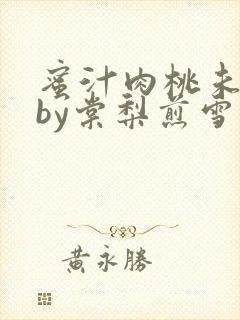 蜜汁肉桃未
by棠梨煎雪
黃永勝